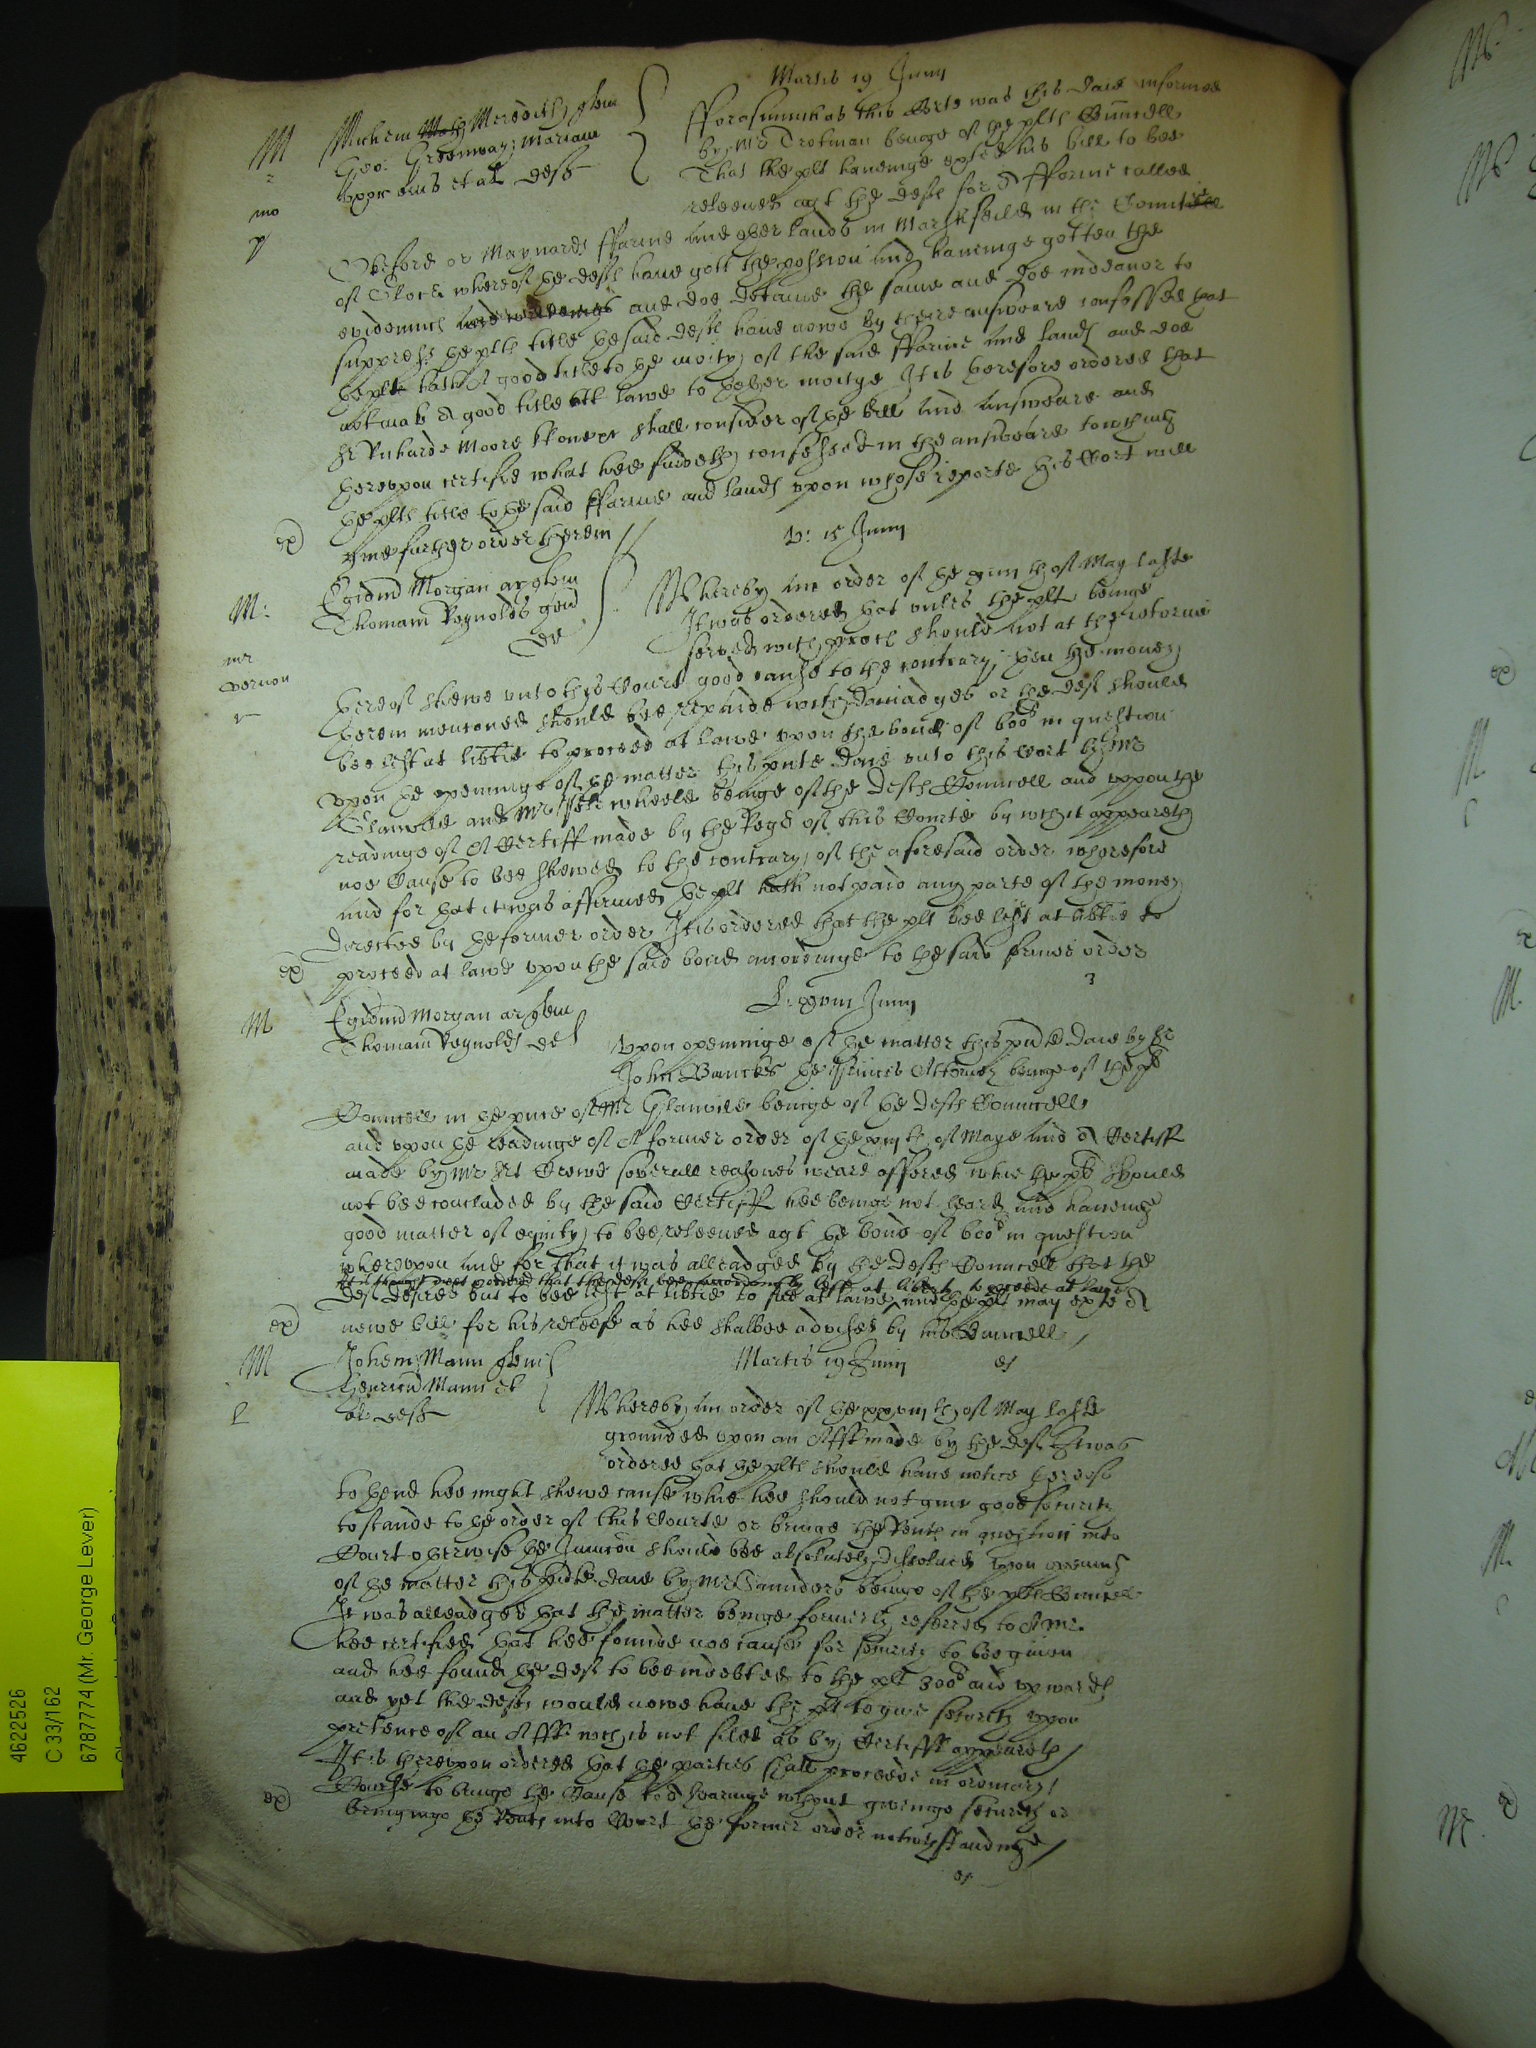 Martis 19 Junij
M Michem Meredith quem
Geo: Greenway Mariam
vxor eius et al deftes
fforasmuch as this Corte was this daie informed
by Mr Trotman beinge of the plts Councell
That the plt haveinge exhited his bill to bee
releeved agt the deftes for a fferme called
Okford or Maynards fferme and other lands in Marshfeild in the Countie
of Glouc whereof the deftes have gott the possession and haveinge gotten the
evidences and doe detaine the same and doe indeavor to
suppresse the plts title the said deftes have nowe by there answeare confessed that
the plt hath a good title to the moity of the said fferme and lands and doe
not mak a good title att lawe to thother moitye It is therefore ordered that
Sr Richarde Moore shall consider of the bill and answeare and
therevpon certifie what hee findeth confessed in the answeare touching
the plts title to the said fferme and lands vpon whose reporte this Cort will
give further order therein
ex
V: 15 Junij
M: Egidius Morgan ar quem
Thomam Reynolds gen
def
mr
Vernon
Whereby an order of the th of May laste
It was ordered that vnles the plt beinge
served with proces should not at the retorne
thereof shewe vnto this Court good cause to the contrary then the money
therein mencioned should bee repaide with damadges or the deft should
bee left at libtie to proceed at lawe vpon the bond of 600l in question
vpon the openinge of the matter this pnte daie vnto this Cort by Mr
Glanvile and Mr wheele beinge of the defts Councell and vppon the
readinge of a Certiff made by the Regr of this Courte by wch it appeareth
noe Cause to bee shewed to the contrary of the aforesaid order wherefore
and for that it was affirmed the plt hath not paid any parte of the money
directed by the former order It is ordered that the plt bee left at libtie to
proceed at lawe vpon the said bond accordinge to the said former order
ex
L: xviii Junij
M Egidius Morgan ar quem
Thomam Reynolds def
Vpon openinge of the matter this pnte daie by Sr
John Banckes the Princes Attorney beinge of the plts
Councell in the pnce of Mr Glanvile beinge of the defts Councell
and vpon the readinge of a former order of the th of Maye and a Certiff
made by Mr Crewe severall reasones weare offered whie the plt should
not bee concluded by the said Certiff hee beinge not heard and haveinge
good matter of equity to bee releeved agt the bond of 600l in question
wherevpon and for that it was alleadged by the defts Councell that the
deft desires but to bee left at libtie to sue at lawe and the plt may exhte a
newe bill for his releefe as hee shalbee advised by his Councell
ex
M Johem Mann quem
Henricum Mann et
al deftes
Martis 19 Junij
Whereby an order of the th of May laste
grounded vpon an Afft made by the deft It was
ordered that the plts should have notice thereof
to thend hee might shewe cause whie hee should not give good security
to stande to the order of this Courte or bringe the Rents in question into
Court otherwise the Iniuncon should bee absolutely dissolved vpon opening
of the matter this pnte daie by Mr Saunders beinge of the plts Councell
It was alleadged that the matter beinge formerly referred to a Mr
hee certified that hee founde noe cause for security to bee given
and hee found the deft to bee indebted to the plt 300l and vpwards
and yet the defts would nowe have the plt to give security vpon
pretence of an Afft wch is not filed as by Certiff appeareth
It is therevpon ordered that the parties shall proceede in ordinary
Course to bringe the Cause to a hearinge without givinge security or
bringinge the Rents into Court the former order notwthstandinge
ex
4622526
C 33/162
6787774 (Mr. George Lever)